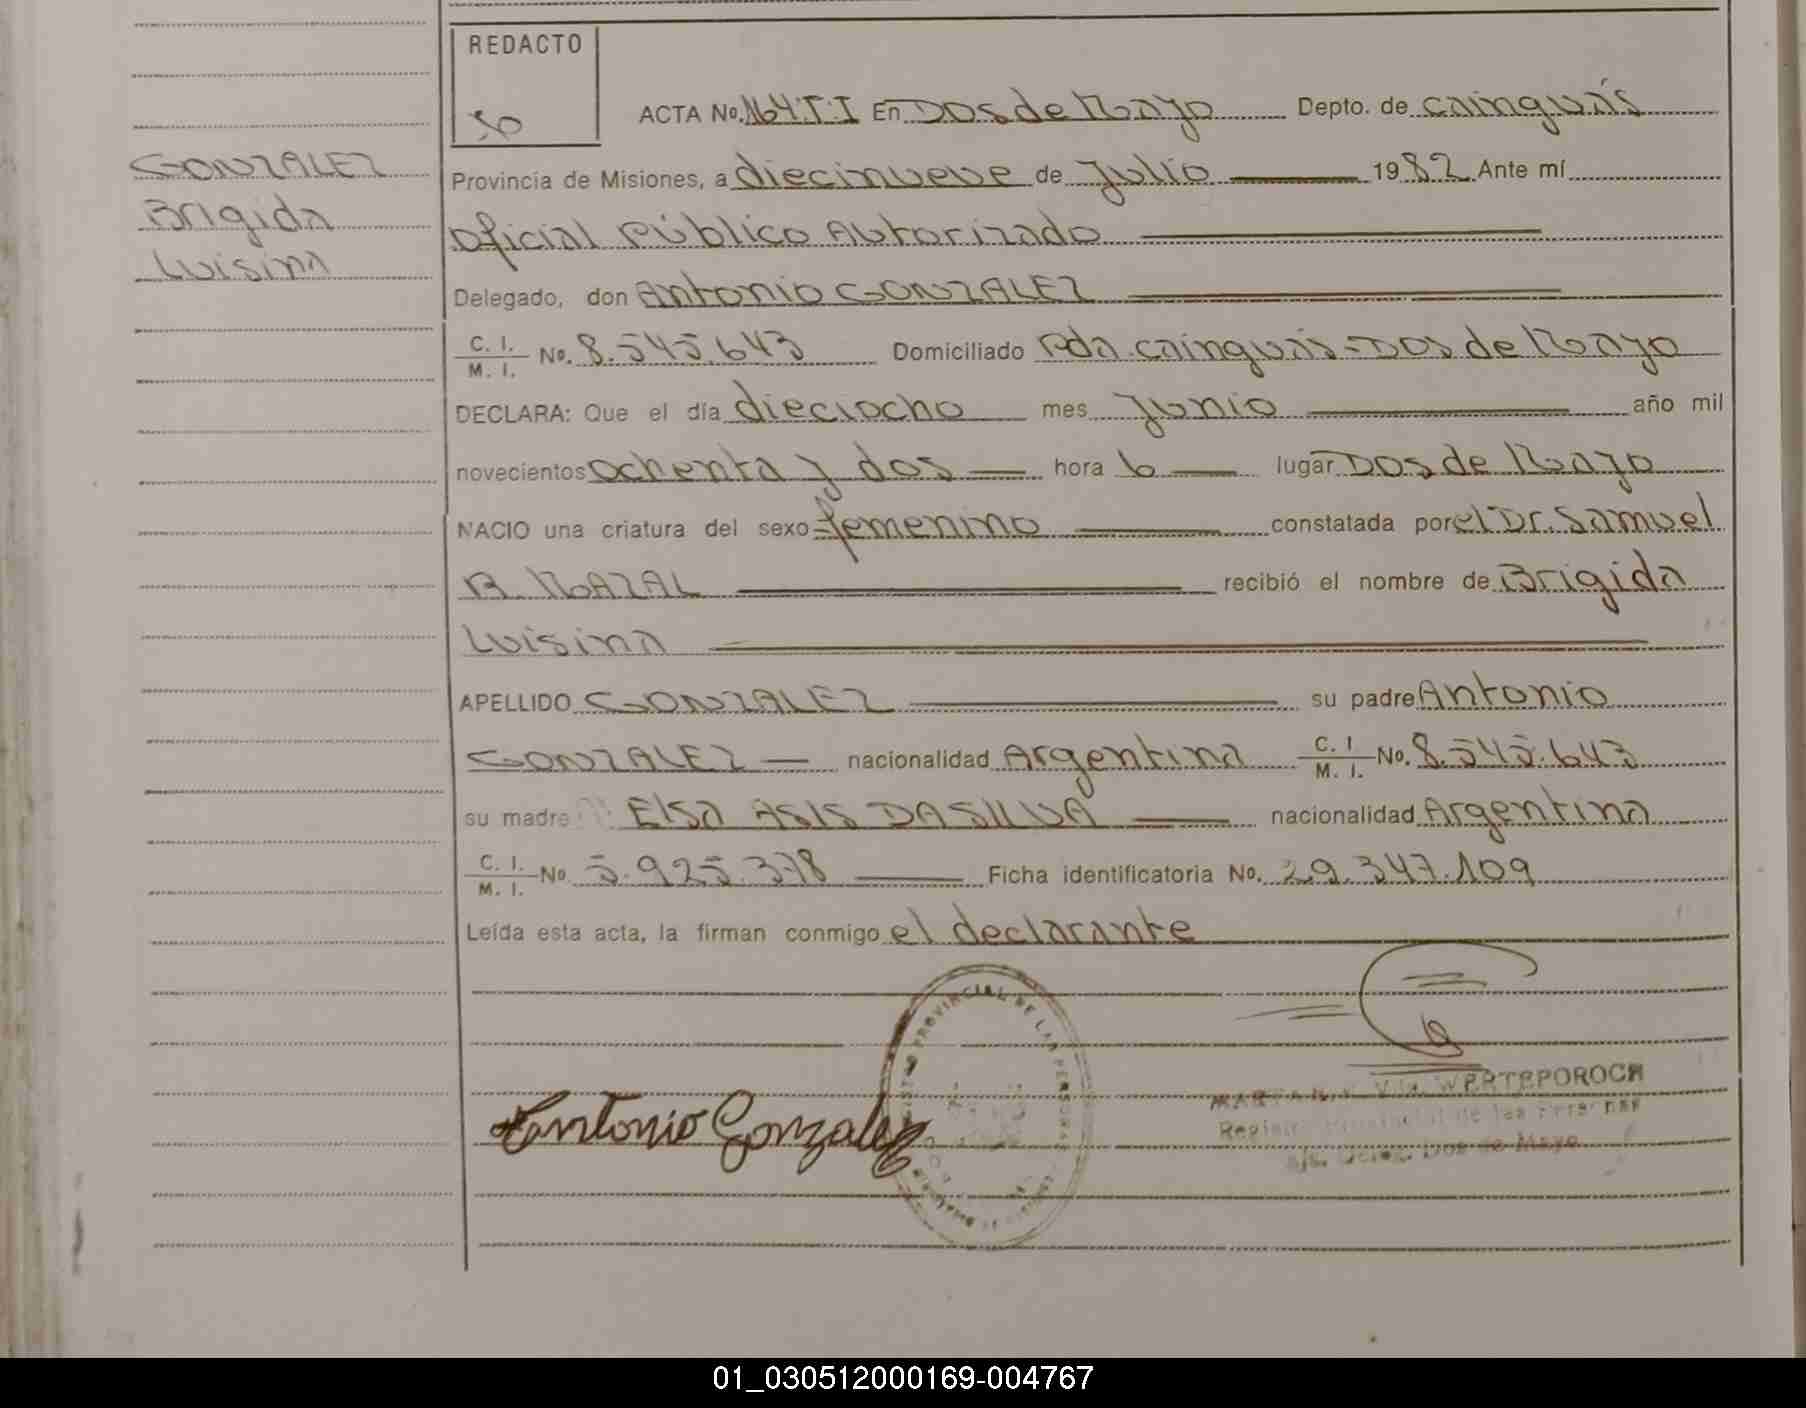 REDACTO
ACTA No. 164.T.I En Dos de Mayo Depto. de Cainguás
GONZALEZ
Brigida
Luisina
Provincia de Misiones, a diecinueve de Julio 1982 Ante mí
Oficial Público Autorizado
Delegado, don Antonio GONZALEZ
C. I. M. I. No. 8.545.643 Domiciliado Pda. Cainguás-Dos de Mayo
DECLARA: Que el día dieciocho mes Junio año mil
novecientos ochenta y dos hora 6 lugar Dos de Mayo
NACIO una criatura del sexo femenino constatada por el Dr. Samuel
R. MAZAL recibió el nombre de Brigida
Luisina
APELLIDO GONZALEZ su padre Antonio
GONZALEZ nacionalidad Argentina C. I. M. I. No. 8.545.643
su madre Elsa ASIS DASILVA nacionalidad Argentina
C. I. M. I. No. 5.925.378 Ficha identificatoria No. 29.347.109
Leída esta acta, la firman conmigo el declarante
PROVINCIAL DE LAS PERSONAS
Antonio Gonzalez
Vda. WERTEPOROCH
Provincial de las Personas
Dos de Mayo
01_030512000169-004767